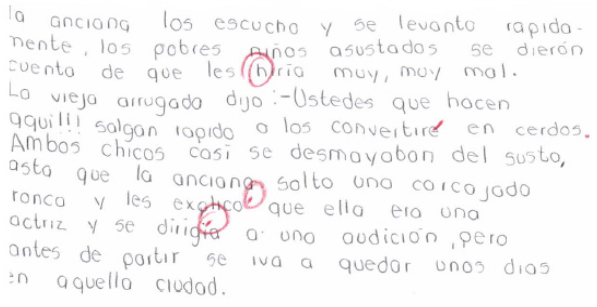 la anciana los escucho y se levanto rapida-
mente, los pobres niños asustados se dierón
cuenta de que les hiria muy, muy mal.
La vieja arrugada dijo:-Ustedes que hacen
aqui!!! salgan rapido o los convertiré en cerdos.
Ambos chicos casi se desmayaban del susto,
asta que la anciana solto una carcajada
ronca y les explico que ella era una
actriz y se dirigia a una audición, pero
antes de partir se iva a quedar unos dias
en aquella ciudad.